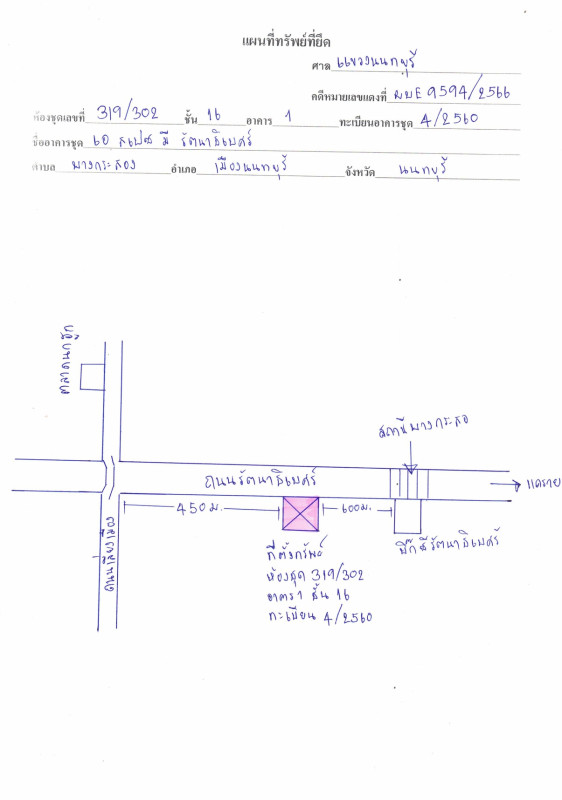 แผนที่ทรัพย์ที่ยึด
ศาล แขวงนนทบุรี
คดีหมายเลขแดงที่ ผบE 9594/2566
ห้องชุดเลขที่ 319/302 ชั้น 16 อาคาร 1 ทะเบียนอาคารชุด 4/2560
ชื่ออาคารชุด เอ สเปซ มี รัตนาธิเบศร์
ตำบล บางกระสอ อำเภอ เมืองนนทบุรี จังหวัด นนทบุรี
ตลาดนกฮูก
สถานีบางกระสอ
ถนนรัตนาธิเบศร์
แคราย
450 ม.
600 ม.
ถนนเลี่ยงเมือง
บิ๊กซีรัตนาธิเบศร์
ที่ตั้งทรัพย์
ห้องชุด 319/302
อาคาร 1 ชั้น 16
ทะเบียน 4/2560